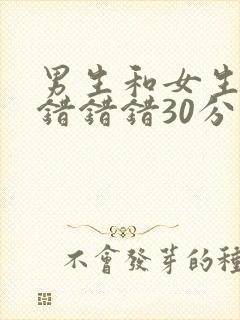 男生和女生
错错错30分
不會發芽的種